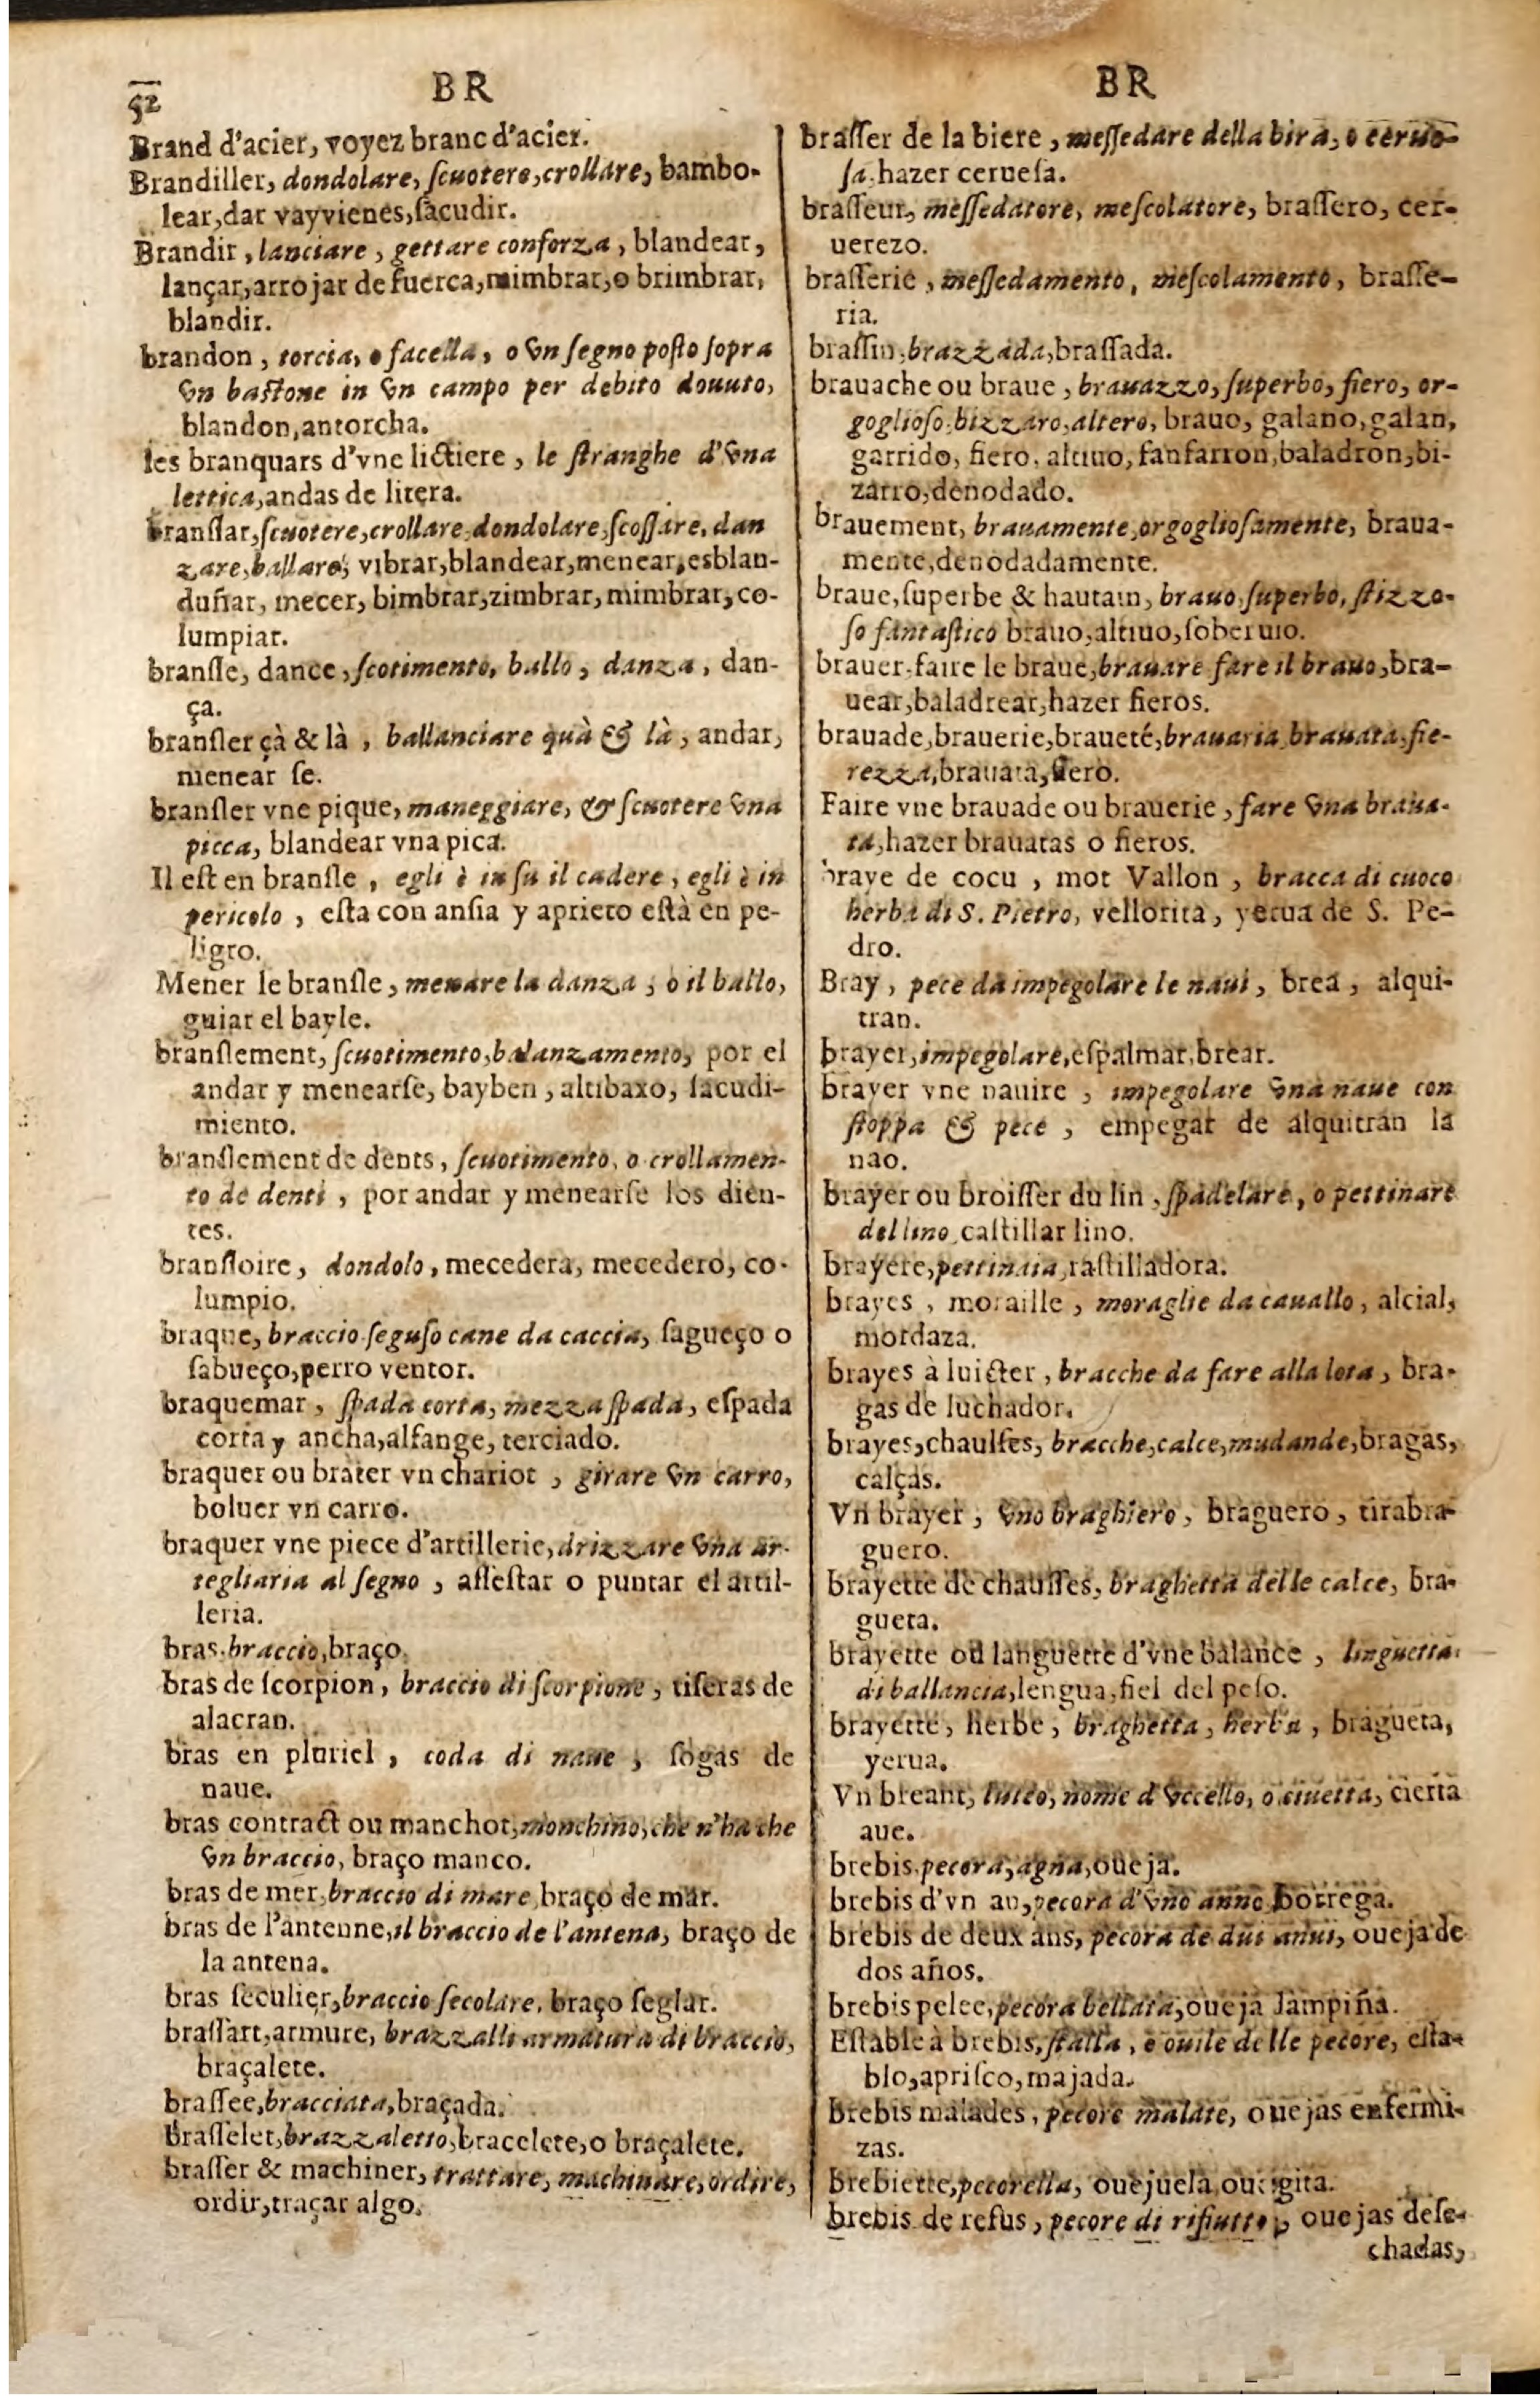 52
BR
Brand d'acier, voyez branc d'acier.
Brandiller, dondolare, ſcuotere, crollare, bambo-
lear, dar vayvienes, ſacudir.
Brandir, lanciare, gettare con forza, blandear,
lançar, arrojar de fuerca, mimbrar, o brimbrar,
blandir.
brandon, torcia, o facella, o vn ſegno poſto ſopra
vn baſtone in vn campo per debito douuto,
blandon, antorcha.
les branquars d'vne lictiere, le ſtranghe d'vna
lettica, andas de litera.
branſlar, ſcuotere, crollare, dondolare, ſcoſſare, dan
zare, ballare, vibrar, blandear, menear, esblan-
duñar, mecer, bimbrar, zimbrar, mimbrar, co-
lumpiar.
branſle, dance, ſcotimento, ballo, danza, dan-
ça.
branſler çà & là, ballanciare quà & là, andar,
menear ſe.
branſler vne pique, maneggiare, & ſcuotere vna
picca, blandear vna pica.
Il eſt en branſle, egli è in ſu il cadere, egli è in
pericolo, eſta con anſia y aprieto eſtà en pe-
ligro.
Mener le branſle, menare la danza, o il ballo,
guiar el bayle.
branſlement, ſcuotimento, balanzamento, por el
andar y menearſe, bayben, altibaxo, ſacudi-
miento.
branſlement de dents, ſcuotimento, o crollamen-
to de denti, por andar y menearſe los dien-
tes.
branſloire, dondolo, mecedera, mecedero, co-
lumpio.
braque, braccio ſeguſo cane da caccia, ſagueço o
ſabueço, perro ventor.
braquemar, ſpada corta, mezza ſpada, eſpada
corta y ancha, alfange, terciado.
braquer ou brater vn chariot, girare vn carro,
boluer vn carro.
braquer vne piece d'artillerie, drizzare vna ar-
tegliaria al ſegno, aſſeſtar o puntar el artil-
leria.
bras, braccio, braço.
bras de ſcorpion, braccio di ſcorpione, tiſeras de
alacran.
bras en pluriel, coda di naue, ſogas de
naue.
bras contract ou manchot, monchino, che n'ha che
vn braccio, braço manco.
bras de mer, braccio di mare, braço de mar.
bras de l'antenne, il braccio de l'antena, braço de
la antena.
bras ſeculier, braccio ſecolare, braço ſeglar.
braſſart, armure, brazzalli armatura di braccio,
braçalete.
braſſee, bracciata, braçada.
Braſſelet, brazzaletto, bracelete, o braçalete.
braſſer & machiner, trattare, machinare, ordire,
ordir, traçar algo.
BR
braſſer de la biere, meſſedare della bira, o ceruo-
ſa, hazer cerueſa.
braſſeur, meſſedatore, meſcolatore, braſſero, cer-
uerezo.
braſſerie, meſſedamento, meſcolamento, braſſe-
ria.
braſſin, brazzada, braſſada.
brauache ou braue, brauazzo, ſuperbo, fiero, or-
goglioſo, bizzaro, altero, brauo, galano, galan,
garrido, fiero, altiuo, fanfarron, baladron, bi-
zarro, denodado.
brauement, brauamente, orgoglioſamente, braua-
mente, denodadamente.
braue, ſuperbe & hautain, brauo, ſuperbo, ſtizzo-
ſo fantaſtico brauo, altiuo, ſoberuio.
brauer, faire le braue, brauare fare il brauo, bra-
uear, baladrear, hazer fieros.
brauade, brauerie, braueté, brauaria, brauata, fie-
rezza, brauata, fiero.
Faire vne brauade ou brauerie, fare vna braua-
ta, hazer brauatas o fieros.
braye de cocu, mot Vallon, bracca di cuoco
herba di S. Pietro, vellorita, yerua de S. Pe-
dro.
Bray, pece da impegolare le naui, brea, alqui-
tran.
brayer, impegolare, eſpalmar, brear.
brayer vne nauire, impegolare vna naue con
ſtoppa & pece, empegar de alquitran la
nao.
brayer ou broiſſer du lin, ſpadelare, o pettinare
del lino, caſtillar lino.
brayere, pettinaia, raſtilladora.
brayes, moraille, moraglie da cauallo, alcial,
mordaza.
brayes à luicter, bracche da fare alla lota, bra-
gas de luchador.
brayes, chauſſes, bracche, calce, mudande, bragas,
calças.
Vn brayer, vno braghiero, braguero, tirabra-
guero.
brayette de chauſſes, braghetta delle calce, bra-
gueta.
brayette ou languette d'vne balance, linguetta
di ballancia, lengua, fiel del peſo.
brayette, herbe, braghetta, herba, bragueta,
yerua.
Vn breant, luteo, nome d'vccello, o ciuetta, cierta
aue.
brebis, pecora, agna, oueja.
brebis d'vn an, pecora d'vno anno, borrega.
brebis de deux ans, pecora de dui anni, oueja de
dos años.
brebis pelee, pecora bellata, oueja lampiña.
Eſtable à brebis, ſtalla, o ouile delle pecore, eſta-
blo, apriſco, majada.
Brebis malades, pecore malate, ouejas enfermi-
zas.
Brebiette, pecorella, ouejuela,
brebis de refus, pecore di rifiutto, ouejas deſe-
chadas,